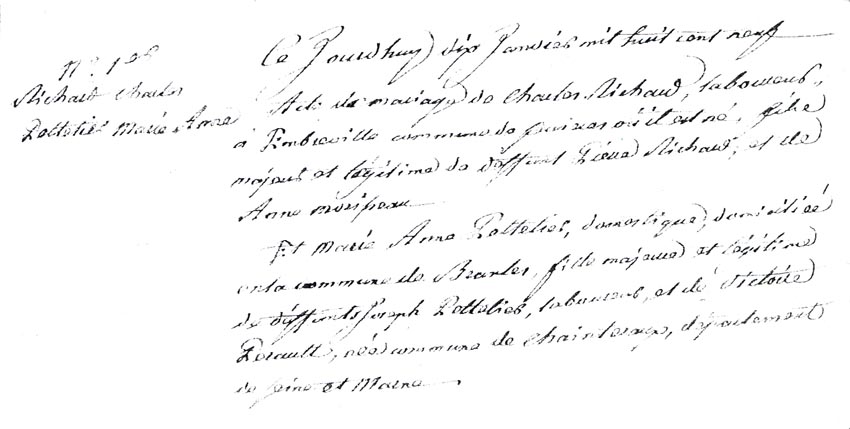 N.° 1er
Richard Charles
Pelletier Marie Anne
Ce Jourdhuy dix Janvier mil huit cent neuf
Acte de mariage de Charles Richard, laboureur,
à commune de où il est né, fils
majeur et légitime de déffunt Pierre Richard, et de
Anne
Et Marie Anne Pelletier, domestique, domiciliée
en la commune de, fille majeure et légitime
de déffunts Joseph Pelletier, laboureur, et de Victoire
Perault, née commune de Chaintreaux, département
de Seine et Marne